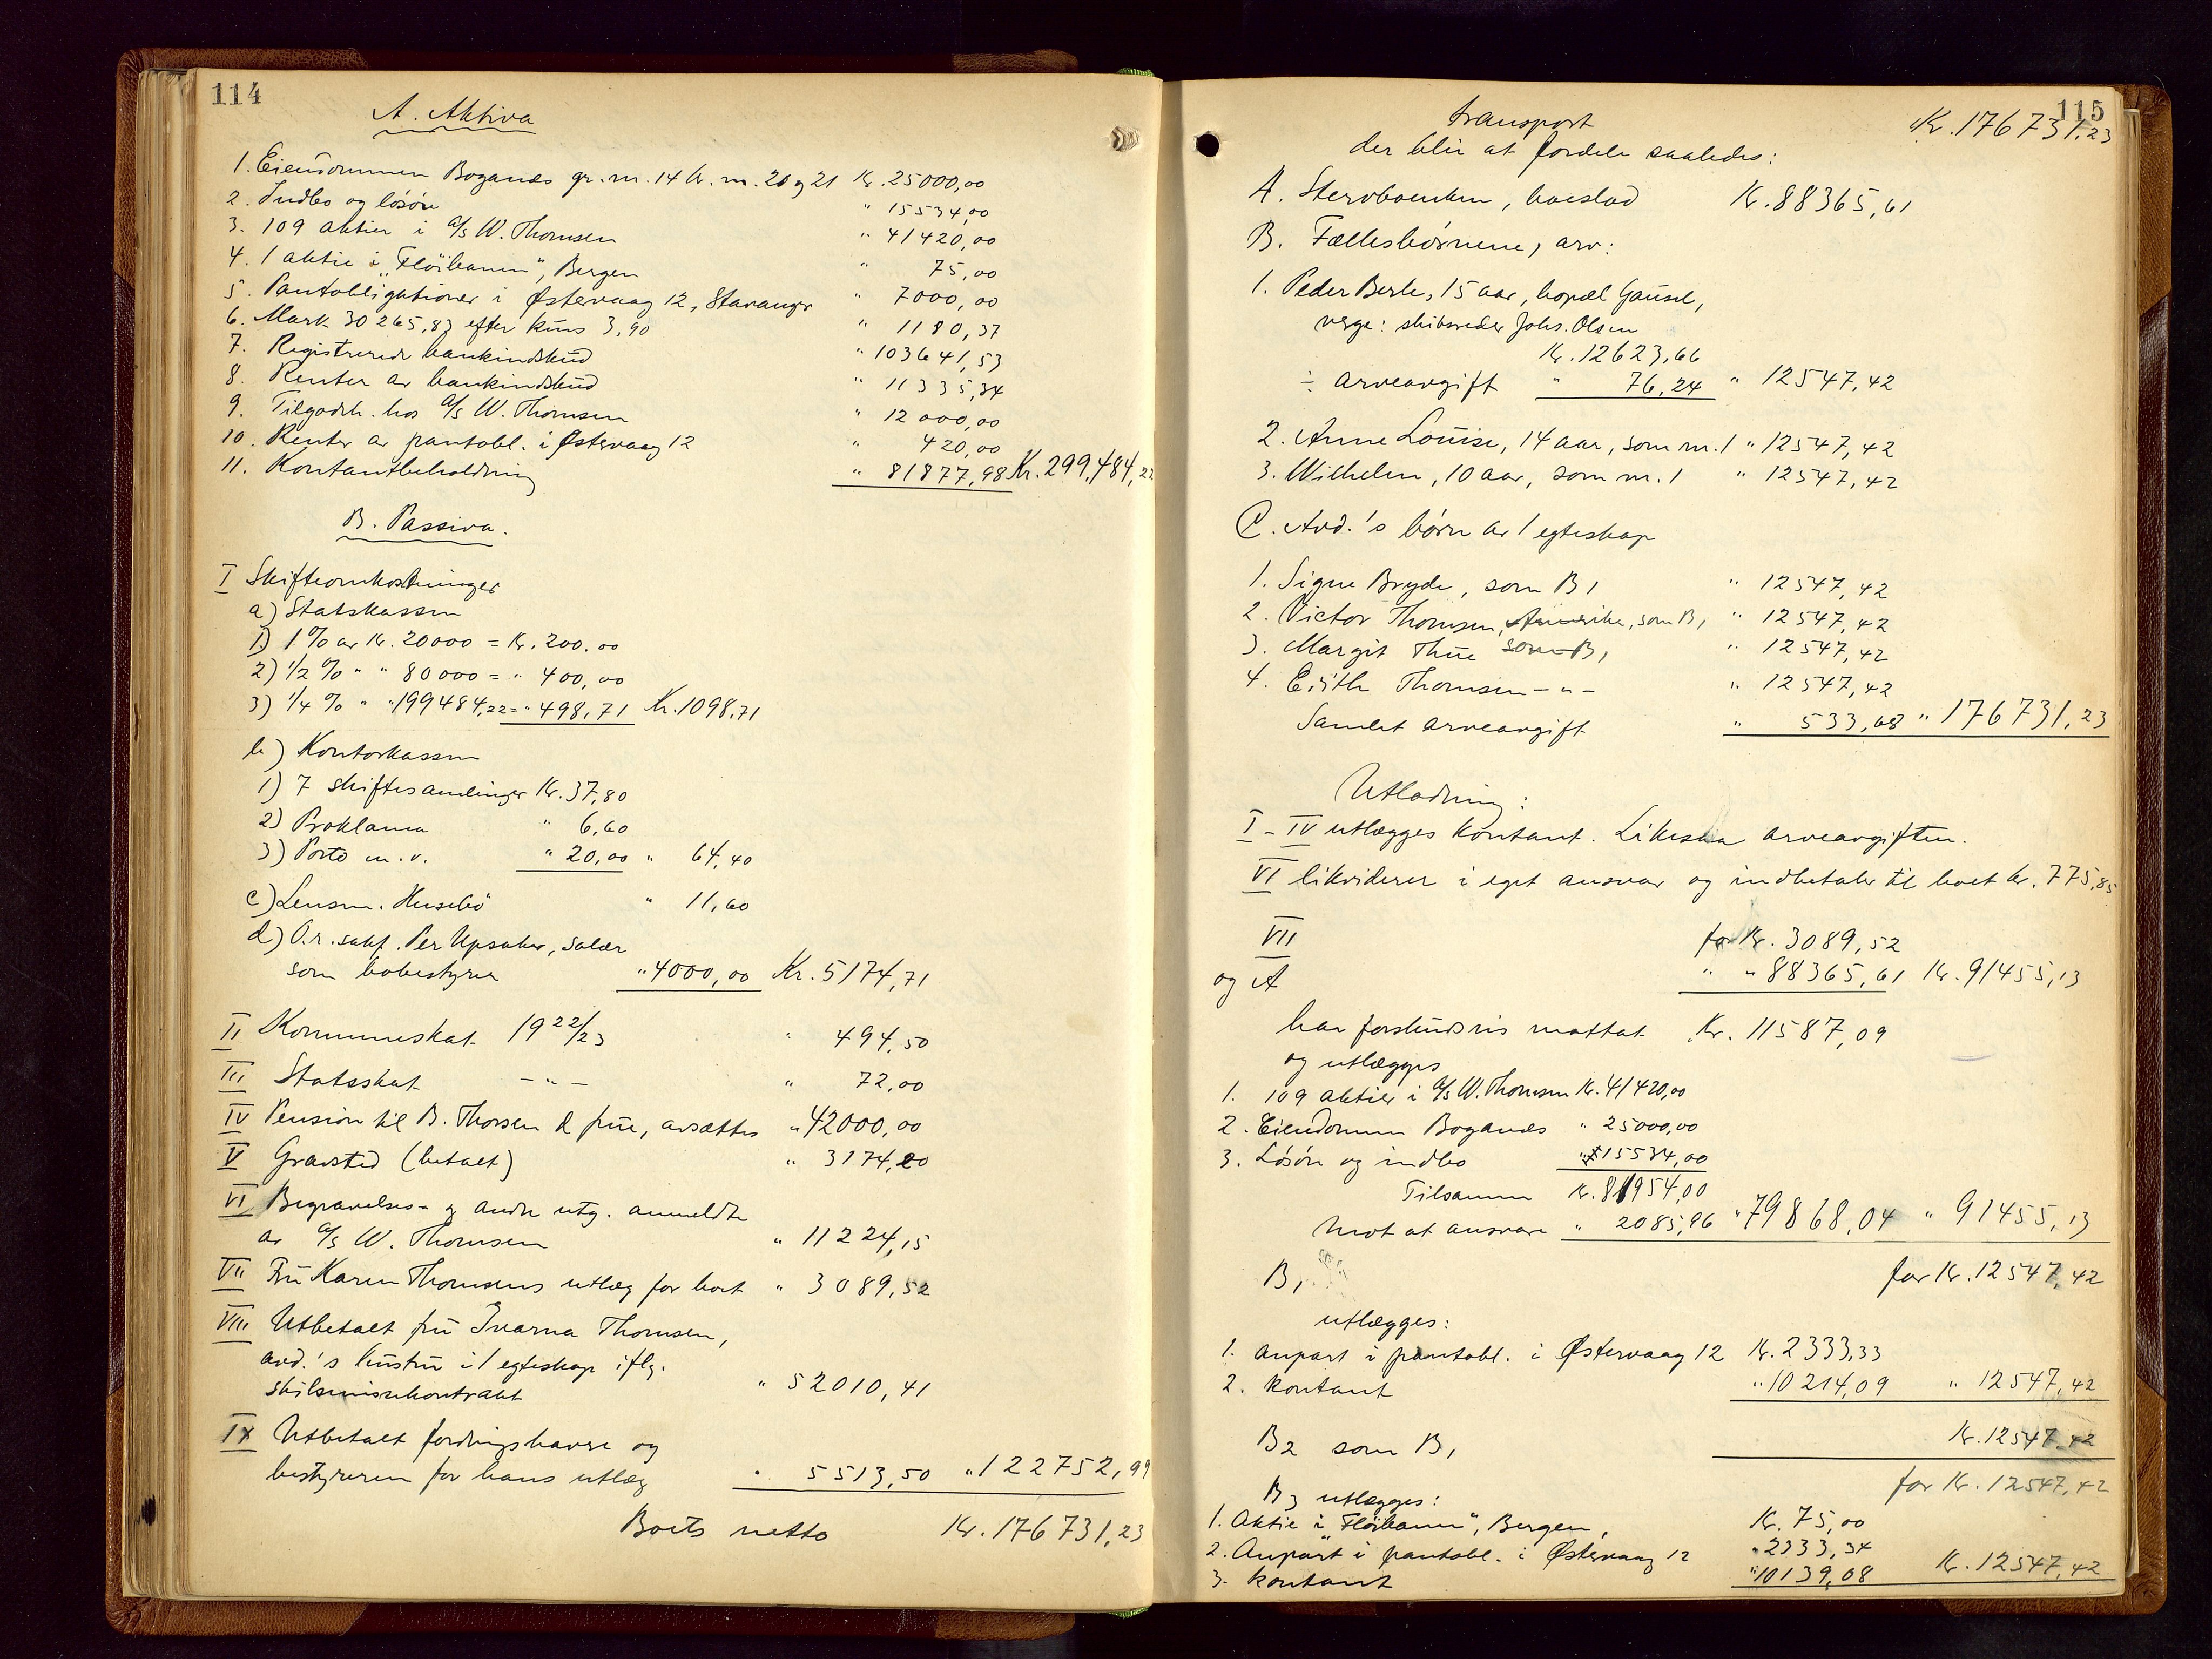 114
A. Aktiva
1. Eiendommen Boganes gr. nr. 14 br. nr. 20 og 21 Kr. 25000,00
2. Indbo og løsøre " 15534,00
3. 109 aktier i A/S W. Thomsen " 41420,00
4. 1 aktie i "Fløibanen", Bergen " 75,00
5. Pantobligationer i Østervaag 12, Stavanger " 7000,00
6. Mark 30265,83 efter kurs 3,90 " 1180,37
7. Registrerede bankindskud " 103641,53
8. Renter av bankindskud " 11335,34
9. Tilgodeh. hos A/S W. Thomsen " 12000,00
10. Renter av pantobl. i Østervaag 12 " 420,00
11. Kontantbeholdning " 81877,98 Kr. 299,484,22
B. Passiva.
I Skifteomkostninger
a) Statskassen
1) 1% av Kr. 20000 = Kr. 200.00
2) 1/2 % " " 80000 = " 400,00
3) 1/4 % " " 199484,22 = " 498,71 Kr. 1098,71
b) Kontorkassen
1) 7 skiftesamlinger Kr. 37,80
2) Proklama " 6,60
3) Porto m. v. " 20,00 " 64,40
c) Lensm. Husebø " 11,60
d) O.r.sakf. Per Upsaker, salær
som bobestyrer " 4000,00 Kr. 5174,71
II Kommuneskat 1922/23 " 494,50
III Statsskat - " - " 72,00
IV Pension til B. Thorsen & frue, avsættes " 42000,00
V Gravsted (betalt) " 3174,20
VI Begravelses- og andre utg. anmeldte
av A/S W. Thomsen " 11224,15
VII Fru Karen Thomsens utlæg for boet " 3089,52
VIII Utbetalt fru Ivarna Thomsen,
avd.'s hustru i 1 egteskap iflg.
skilsmissekontrakt " 52010,41
IX Utbetalt fordringshavere og
bestyreren for hans utlæg " 5513,50 " 122752,99
Boets netto Kr. 176731,23
115
transport Kr. 176731,23
der blir at fordele saaledes:
A. Stervboenken, boeslod Kr. 88365,61
B. Fællesbørnene, arv:
1. Peder Berle, 15 aar, bopæl Gausel,
verge: skibsreder Johs. Olsen
Kr. 12623,66
÷ arveavgift " 76,24 " 12547,42
2. Anne Louise, 14 aar, som nr. 1 " 12547,42
3. Wilhelm, 10 aar, som nr. 1 " 12547,42
C. Avd.'s børn av 1 egteskap
1. Signe Bryde, som B1 " 12547,42
2. Victor Thomsen, Amerika, som B1 " 12547,42
3. Margit Thue som B1 " 12547,42
4. Edith Thomsen - " - " 12547,42
Samlet arveavgift " 533,68 " 176731,23
Utlodning:
I - IV utlægges kontant. Likesaa arveavgiften.
VI likviderer i eget ansvar og indbetaler til boet kr. 775,85
VII for Kr. 3089,52
og A " " 88365,61 Kr. 91455,13
har forskudsvis mottat Kr. 11587,09
og utlægges
1. 109 aktier i A/S W. Thomsen Kr. 41420,00
2. Eiendommen Boganes " 25000,00
3. Løsøre og indbo " 15534,00
Tilsammen Kr. 81954,00
mot at ansvare " 2085,96 " 79868,04 " 91455,13
B1 for Kr. 12547,42
utlægges:
1. anpart i pantobl. i Østervaag 12 Kr. 2333,33
2. kontant " 10214,09 " 12547,42
B2 som B1 Kr. 12547,42
for Kr. 12547,42
B3 utlægges:
1. Aktie i "Fløibanen", Bergen, Kr. 75,00
2. Anpart i pantobl. i Østervaag 12 " 2333,34
3. kontant " 10139,08 Kr. 12547,42